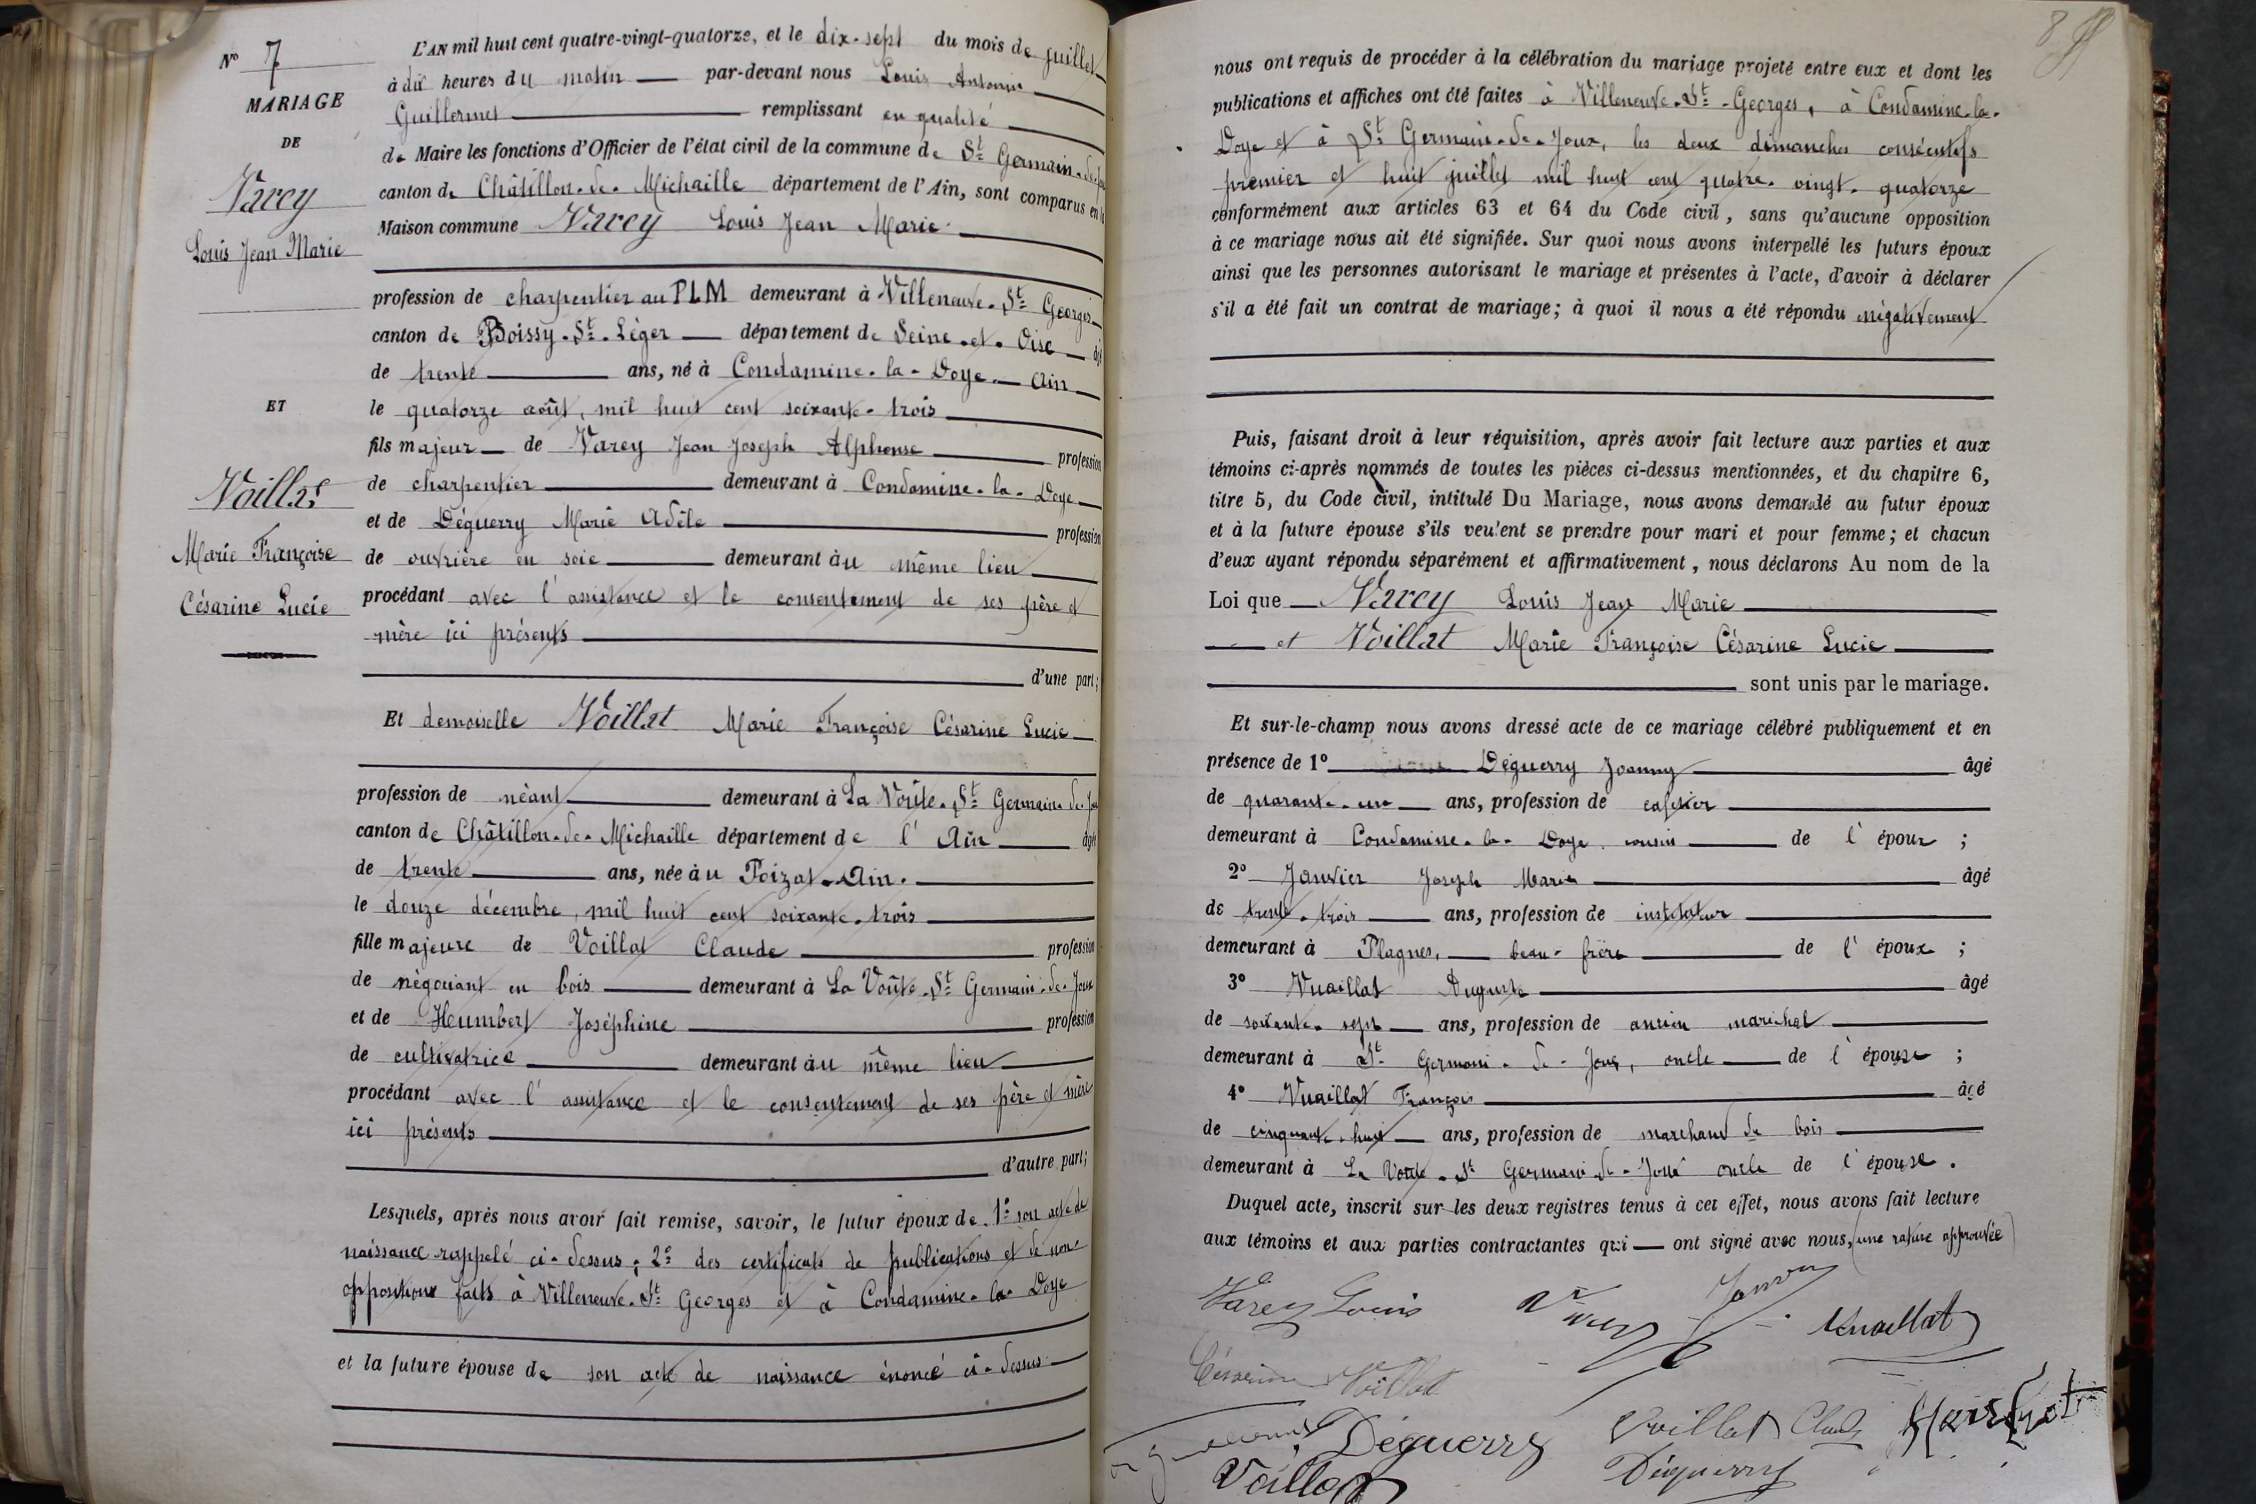 N° 7
MARIAGE
DE
Varey
Louis Jean Marie
ET
Voillat
Marie Françoise
Césarine Lucie
L'AN mil huit cent quatre-vingt-quatorze, et le dix-sept du mois de juillet
à dix heures du matin par-devant nous Louis Antonin
Guillermet remplissant en qualité
de Maire les fonctions d'Officier de l'état civil de la commune de St Germain-de-Joux
canton de Châtillon-de-Michaille département de l'Ain, sont comparus en la
Maison commune Varey Louis Jean Marie
profession de charpentier au PLM demeurant à Villeneuve-St Georges
canton de Boissy-St-Léger département de Seine-et-Oise âgé
de trente ans, né à Condamine-la-Doye Ain
le quatorze août, mil huit cent soixante-trois
fils majeur de Varey Jean Joseph Alphonse profession
de charpentier demeurant à Condamine-la-Doye
et de Déguerry Marie Adèle profession
de ouvrière en soie demeurant au même lieu
procédant avec l'assistance et le consentement de ses père et
mère ici présents
d'une part;
Et demoiselle Voillat Marie Françoise Césarine Lucie
profession de néant demeurant à La Voûte-St Germain-de-Joux
canton de Châtillon-de-Michaille département de l'Ain âgée
de trente ans, née au Poizat-Ain.
le douze décembre, mil huit cent soixante-trois
fille majeure de Voillat Claude profession
de négociant en bois demeurant à La Voûte-St Germain-de-Joux
et de Humbert Joséphine profession
de cultivatrice demeurant au même lieu
procédant avec l'assistance et le consentement de ses père et mère
ici présents
d'autre part;
Lesquels, après nous avoir fait remise, savoir, le futur époux de 1° son acte de
naissance rappelé ci-dessus; 2° des certificats de publications et de non-
oppositions faits à Villeneuve-St Georges et à Condamine-la-Doye
et la future épouse de son acte de naissance énoncé ci-dessus
nous ont requis de procéder à la célébration du mariage projeté entre eux et dont les
publications et affiches ont été faites à Villeneuve-St-Georges, à Condamine-la-
Doye et à St Germain-de-Joux, les deux dimanches consécutifs
premier et huit juillet mil huit cent quatre-vingt-quatorze
conformément aux articles 63 et 64 du Code civil, sans qu'aucune opposition
à ce mariage nous ait été signifiée. Sur quoi nous avons interpellé les futurs époux
ainsi que les personnes autorisant le mariage et présentes à l'acte, d'avoir à déclarer
s'il a été fait un contrat de mariage; à quoi il nous a été répondu négativement
Puis, faisant droit à leur réquisition, après avoir fait lecture aux parties et aux
témoins ci-après nommés de toutes les pièces ci-dessus mentionnées, et du chapitre 6,
titre 5, du Code civil, intitulé Du Mariage, nous avons demandé au futur époux
et à la future épouse s'ils veulent se prendre pour mari et pour femme; et chacun
d'eux ayant répondu séparément et affirmativement, nous déclarons Au nom de la
Loi que Varey Louis Jean Marie
et Voillat Marie Françoise Césarine Lucie
sont unis par le mariage.
Et sur-le-champ nous avons dressé acte de ce mariage célébré publiquement et en
présence de 1° Déguerry Joanny âgé
de quarante-un ans, profession de cafetier
demeurant à Condamine-la-Doye cousin de l'époux;
2° Janvier Joseph Marie âgé
de trente-trois ans, profession de instituteur
demeurant à Plagnes, beau-frère de l'époux;
3° Vuaillat Auguste âgé
de soixante-sept ans, profession de ancien maréchal
demeurant à St Germain-de-Joux, oncle de l'épouse;
4° Vuaillat François âgé
de cinquante-huit ans, profession de marchand de bois
demeurant à La Voûte-St Germain-de-Joux oncle de l'épouse.
Duquel acte, inscrit sur les deux registres tenus à cet effet, nous avons fait lecture
aux témoins et aux parties contractantes qui ont signé avec nous, (une rature approuvée)
Varey Louis Janvier Vuaillat
Césarine Voillat
Déguerry Voillat Claude
Voillat Déguerry